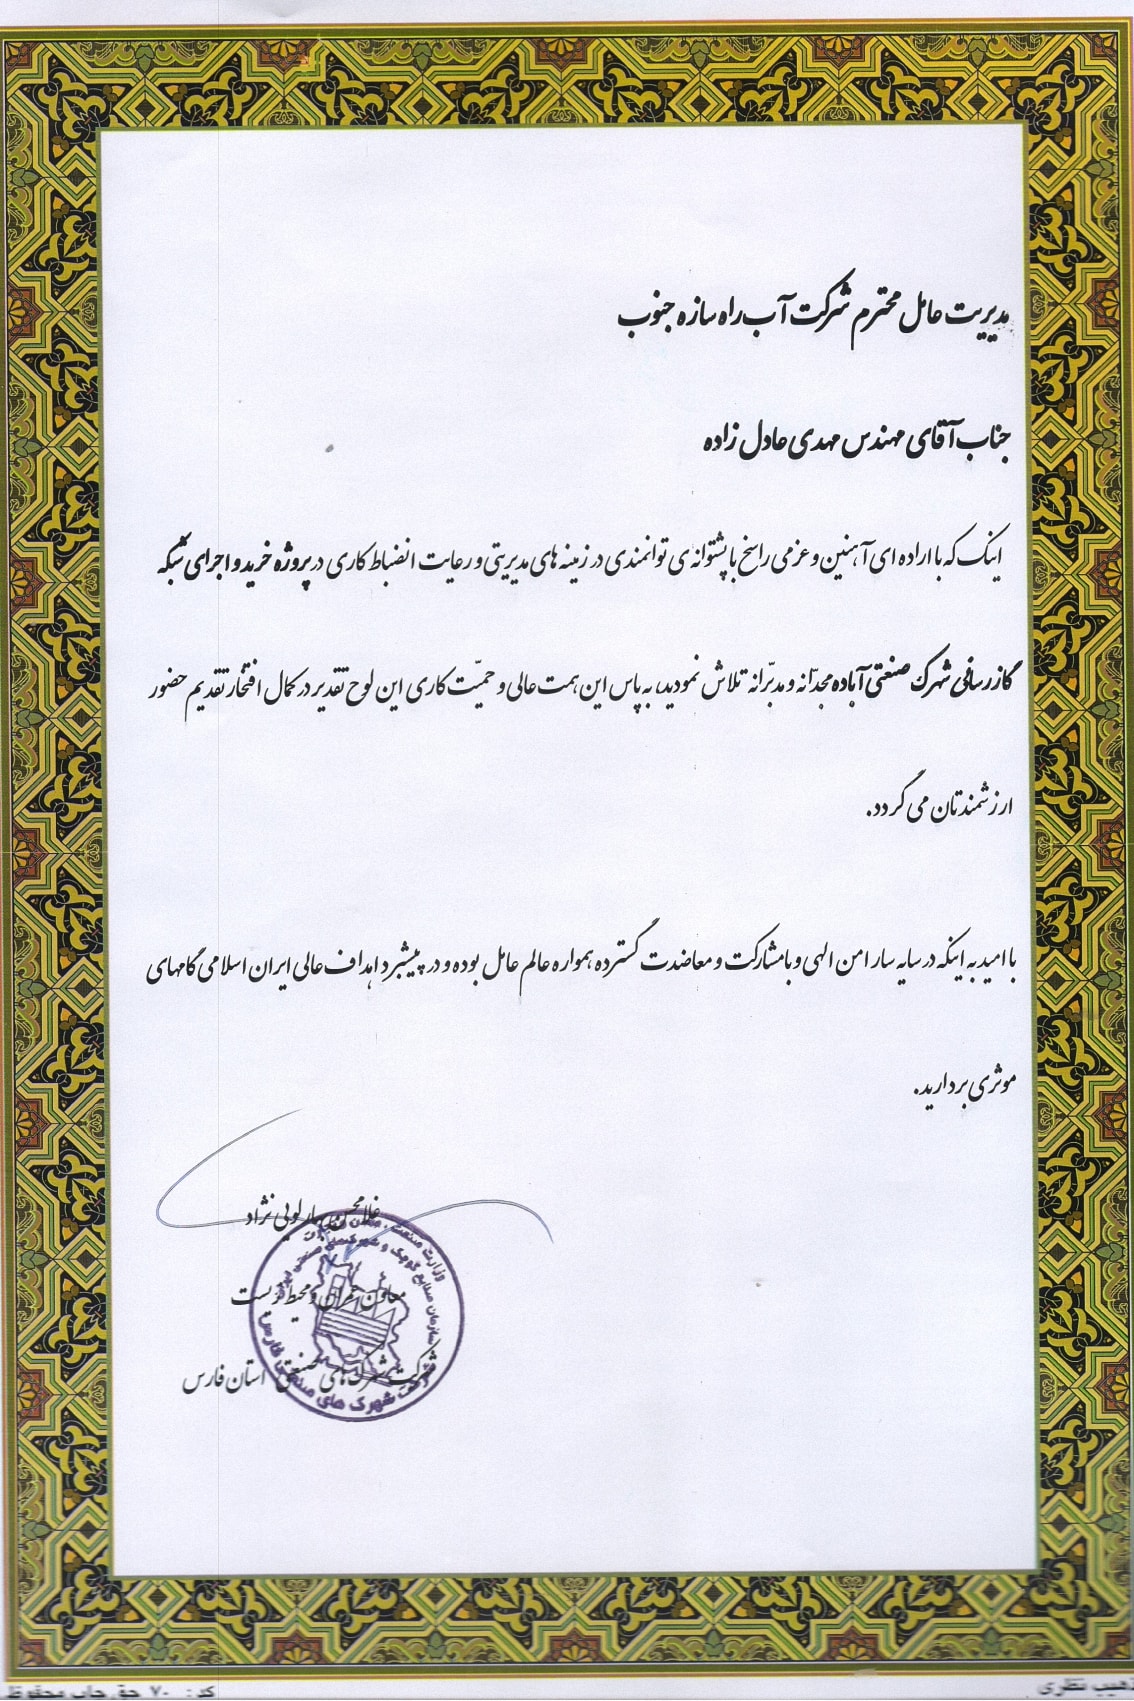 مدیریت عامل محترم شرکت آب راه سازه جنوب
جناب آقای مهندس مهدی عادل زاده
اینک که با اراده ای آهنین و عزمی راسخ با پشتوانه ی توانمندی در زمینه های مدیریتی و رعایت انضباط کاری در پروژه خرید و اجرای شبکه
گازرسانی شهرک صنعتی آباده مجدّانه و مدبّرانه تلاش نمودید، به پاس این همت عالی و حمیّت کاری این لوح تقدیر در کمال افتخار تقدیم حضور
ارزشمندتان می گردد.
با امید به اینکه در سایه سار امن الهی و با مشارکت و معاضدت گسترده همواره عالم عامل بوده و در پیشبرد اهداف عالی ایران اسلامی گامهای
موثری بردارید.
نژاد
معاون عمران و محیط زیست
شرکت شهرک های صنعتی استان فارس
وزارت صنعت، معدن
سازمان صنایع کوچک و شهرکهای صنعتی ایران
شرکت شهرک های صنعتی فارس
تذهیب نظری
کد: ۷۰ حق چاپ محفوظ